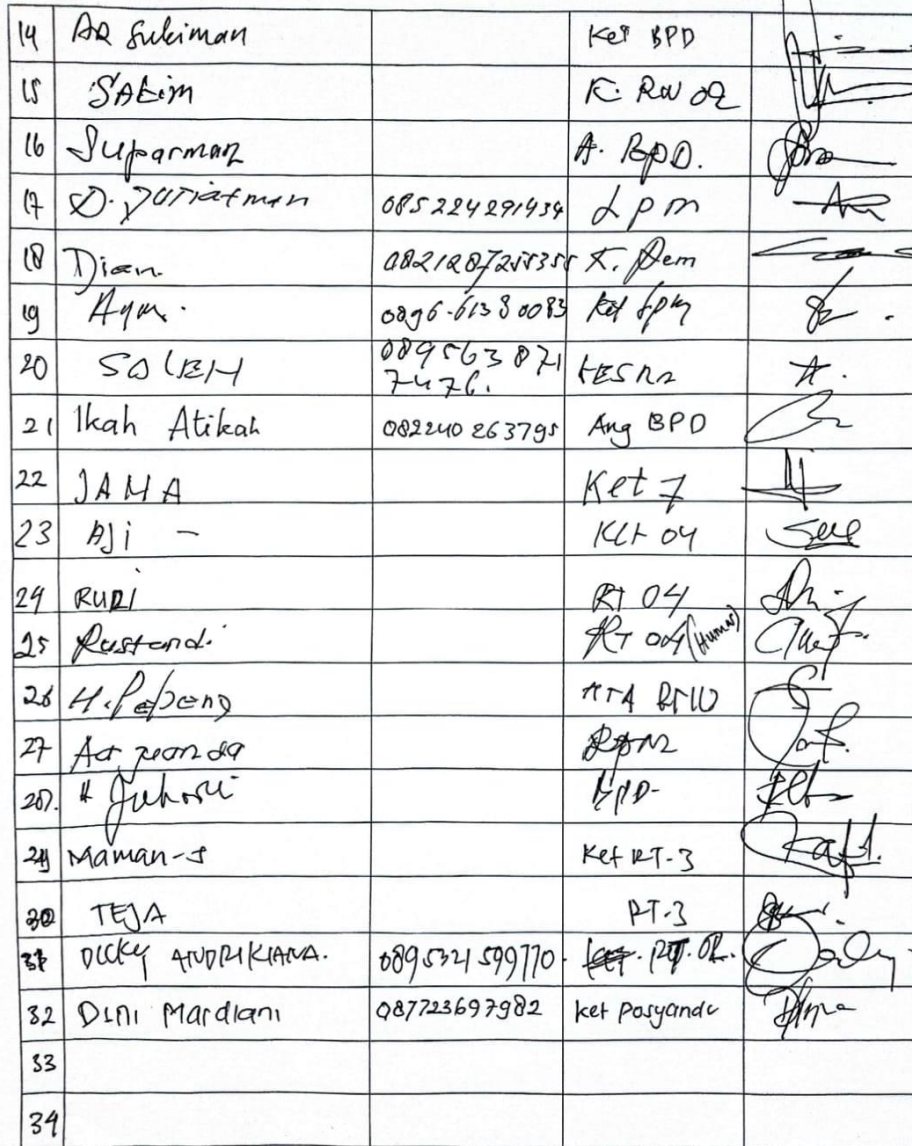 14 AR Sukiman Ket BPD
15 SAKim K. RW 02
16 Suparman A. BPD.
17 D. Juriatman 085224291434 LPM
18 Dian. K. Dem
19 0896-61380083 Ket LPM
20 SOLEH 089563871
7476.
21 Ikah Atikah 082240263795 Ang BPD
22 JAMA Ket 7
23 Aji - Ket 04
24 RUDI RT 04
25 Rustandi RT 04 (Humas)
26 H.
27 Aa
28. H BPD-
29 Maman-S Ket RT-3
30 TEJA RT-3
31 DICKY ANDRIKIANA. 0895321599770.
32 Dini Mardiani 087723697982 ket Posyandu
33
34